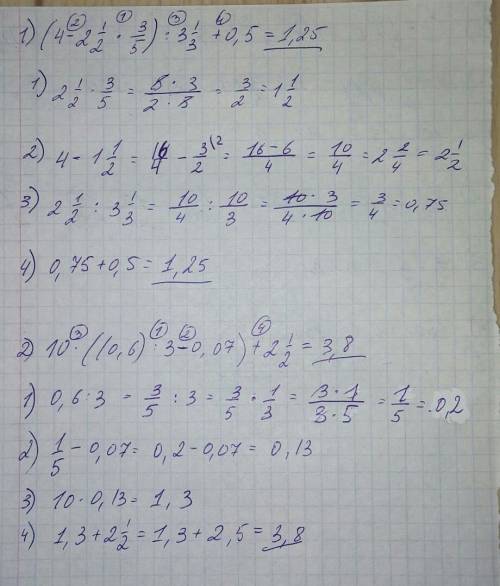 1) (4 - 2 1/2 · 3/5) : 3 1/3 + 0,5 = 1,25
② ① ③ ④
1) 2 1/2 · 3/5 = 5·3/2·5 = 3/2 = 1 1/2
2) 4 - 1 1/2 = 16/4 - 3/2 \2 = 16-6/4 = 10/4 = 2 2/4 = 2 1/2
3) 2 1/2 : 3 1/3 = 10/4 : 10/3 = 10·3/4·10 = 3/4 = 0,75
4) 0,75 + 0,5 = 1,25
2) 10 · ((0,6) : 3 - 0,07) + 2 1/2 = 3,8
③ ① ② ④
1) 0,6 : 3 = 3/5 : 3 = 3/5 · 1/3 = 3·1/3·5 = 1/5 = 0,2
2) 1/5 - 0,07 = 0,2 - 0,07 = 0,13
3) 10 · 0,13 = 1,3
4) 1,3 + 2 1/2 = 1,3 + 2,5 = 3,8